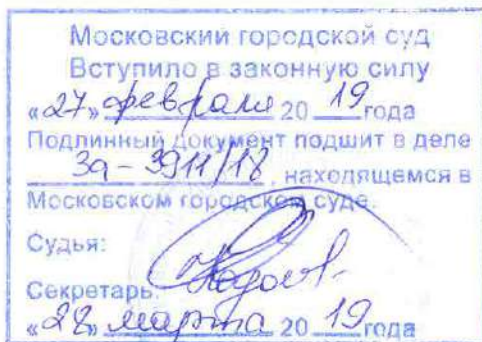 Московский городской суд
Вступило в законную силу
«27» февраля 20 19 года
Подлинный документ подшит в деле
3а-3911/18, находящемся в
Московском городском суде.
Судья:
Секретарь:
марта 20 19 года